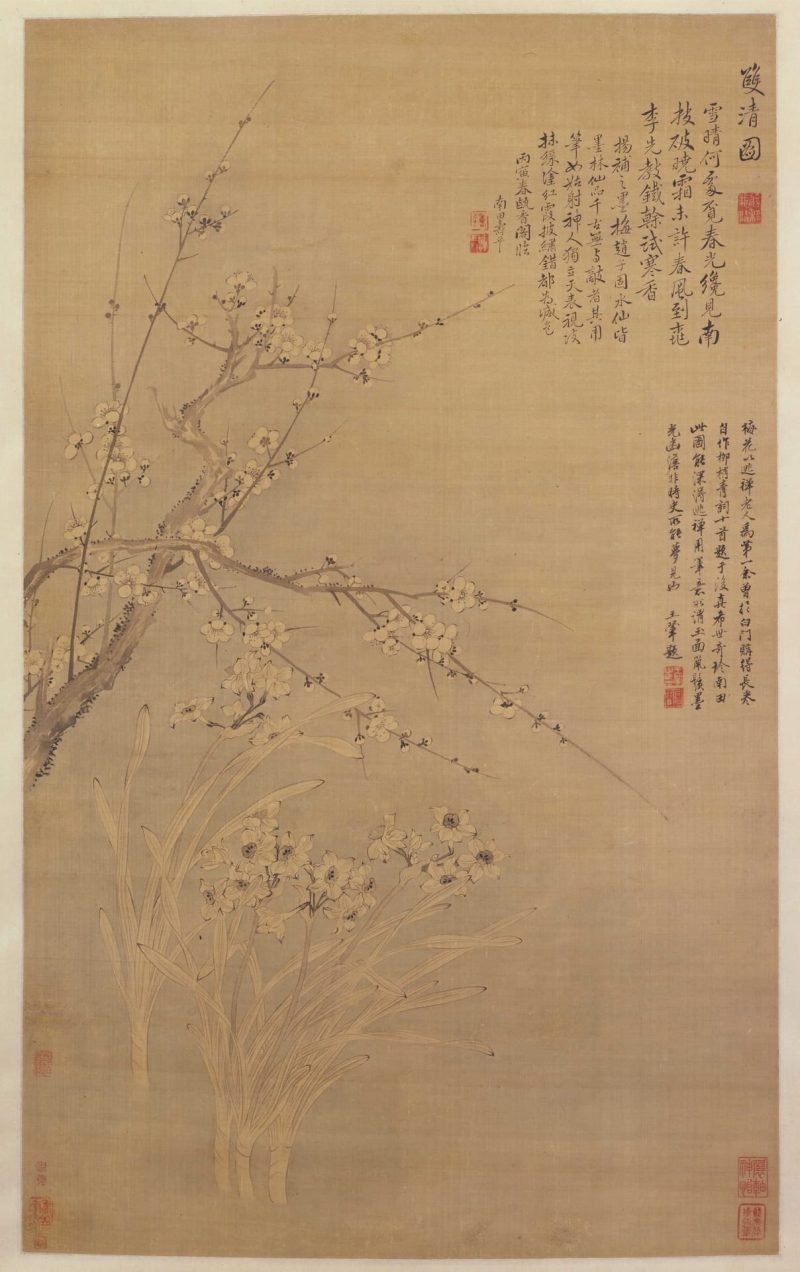 雙清圖
雪晴何處覓春光纔見南
技破曉霜未許春風到桃
李先教鐵幹試寒香
揚補之墨梅趙子固水仙皆
墨林仙品千古無與敵者其用
筆如姑射神人獨立天表視冷
抹綠塗紅霞披繡錯都為減色
丙寅春甌香閣臨
南田壽平
梅花以逃禪老人為第一余曾於白門購得長卷
自作柳梢青詞十首題于後真希世奇珍南田
此圖能深得逃禪用筆意所謂玉面風鬟墨
光幽澹非時史所能夢見也 王翬題